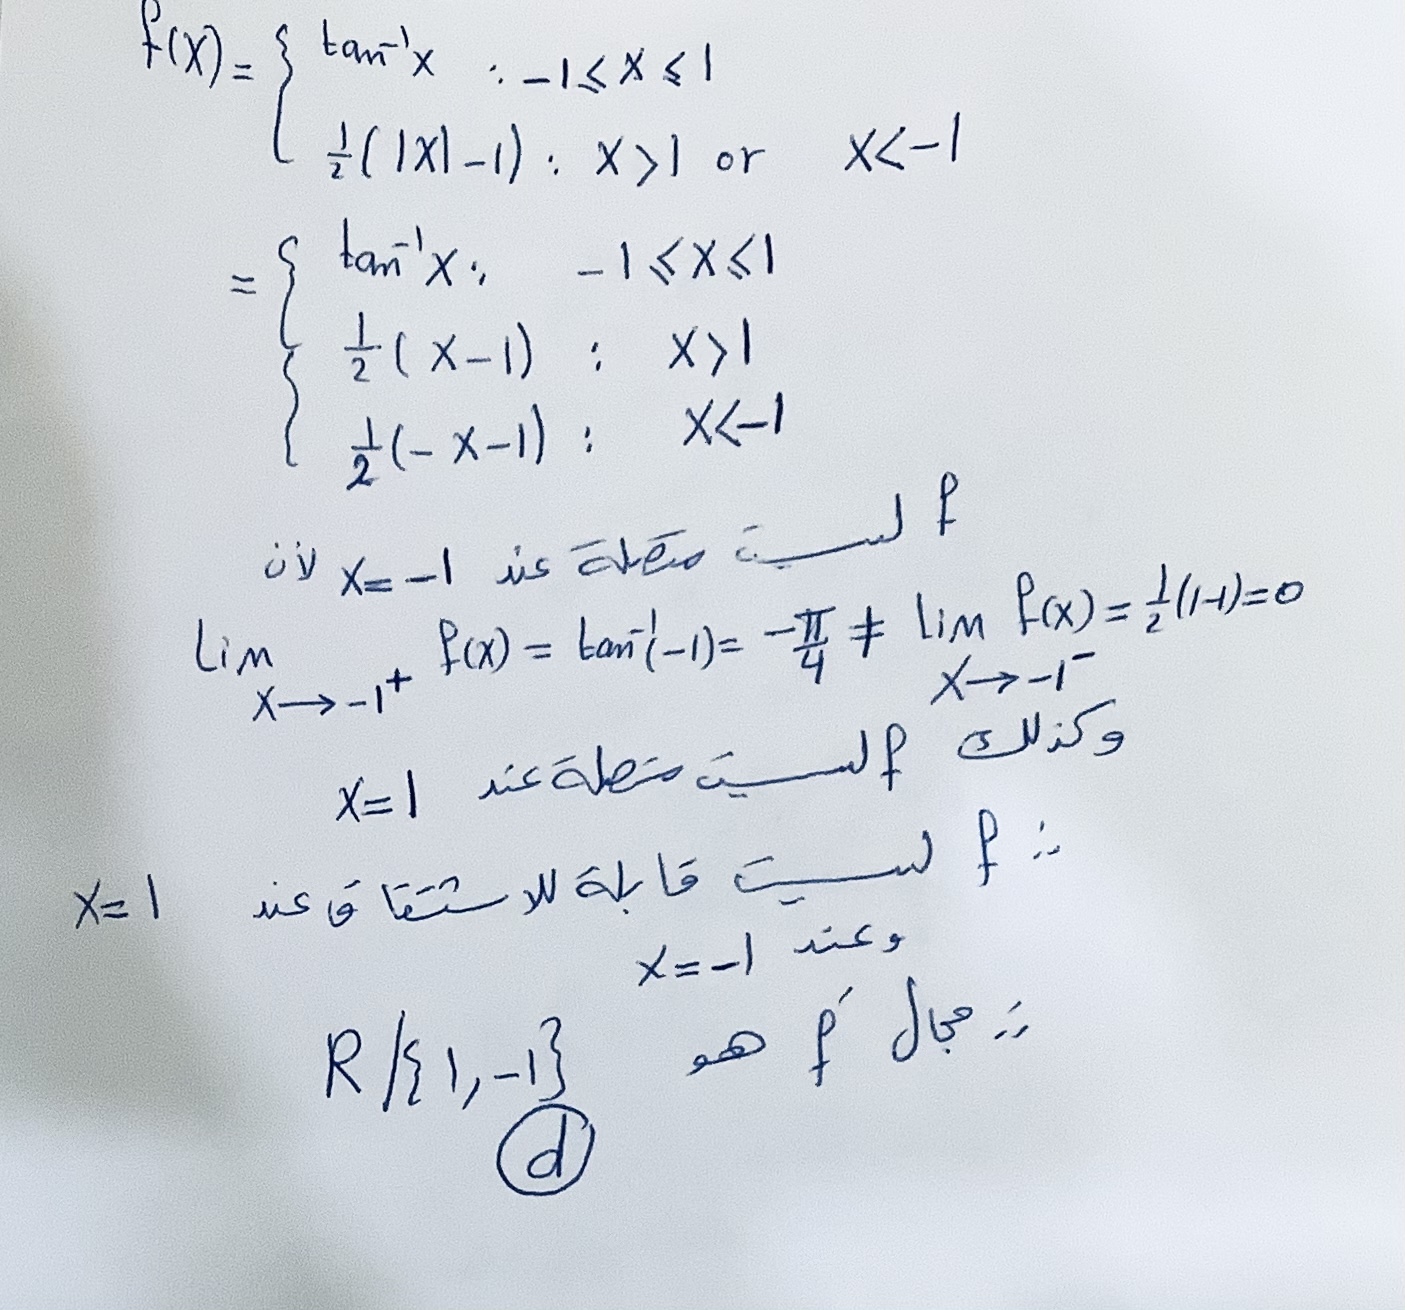 f(x) = { tan⁻¹x : -1 ≤ x ≤ 1
½(|x|-1) : x > 1 or x < -1
= { tan⁻¹x : -1 ≤ x ≤ 1
½(x-1) : x > 1
½(-x-1) : x < -1
f ليست متصلة عند x = -1 لأن
lim x→-1⁺ f(x) = tan⁻¹(-1) = -π/4 ≠ lim x→-1⁻ f(x) = ½(1-1) = 0
وكذلك f ليست متصلة عند x = 1
∴ f ليست قابلة للاشتقاق عند x = 1
وعند x = -1
∴ مجال f′ هو R/{1,-1}
d